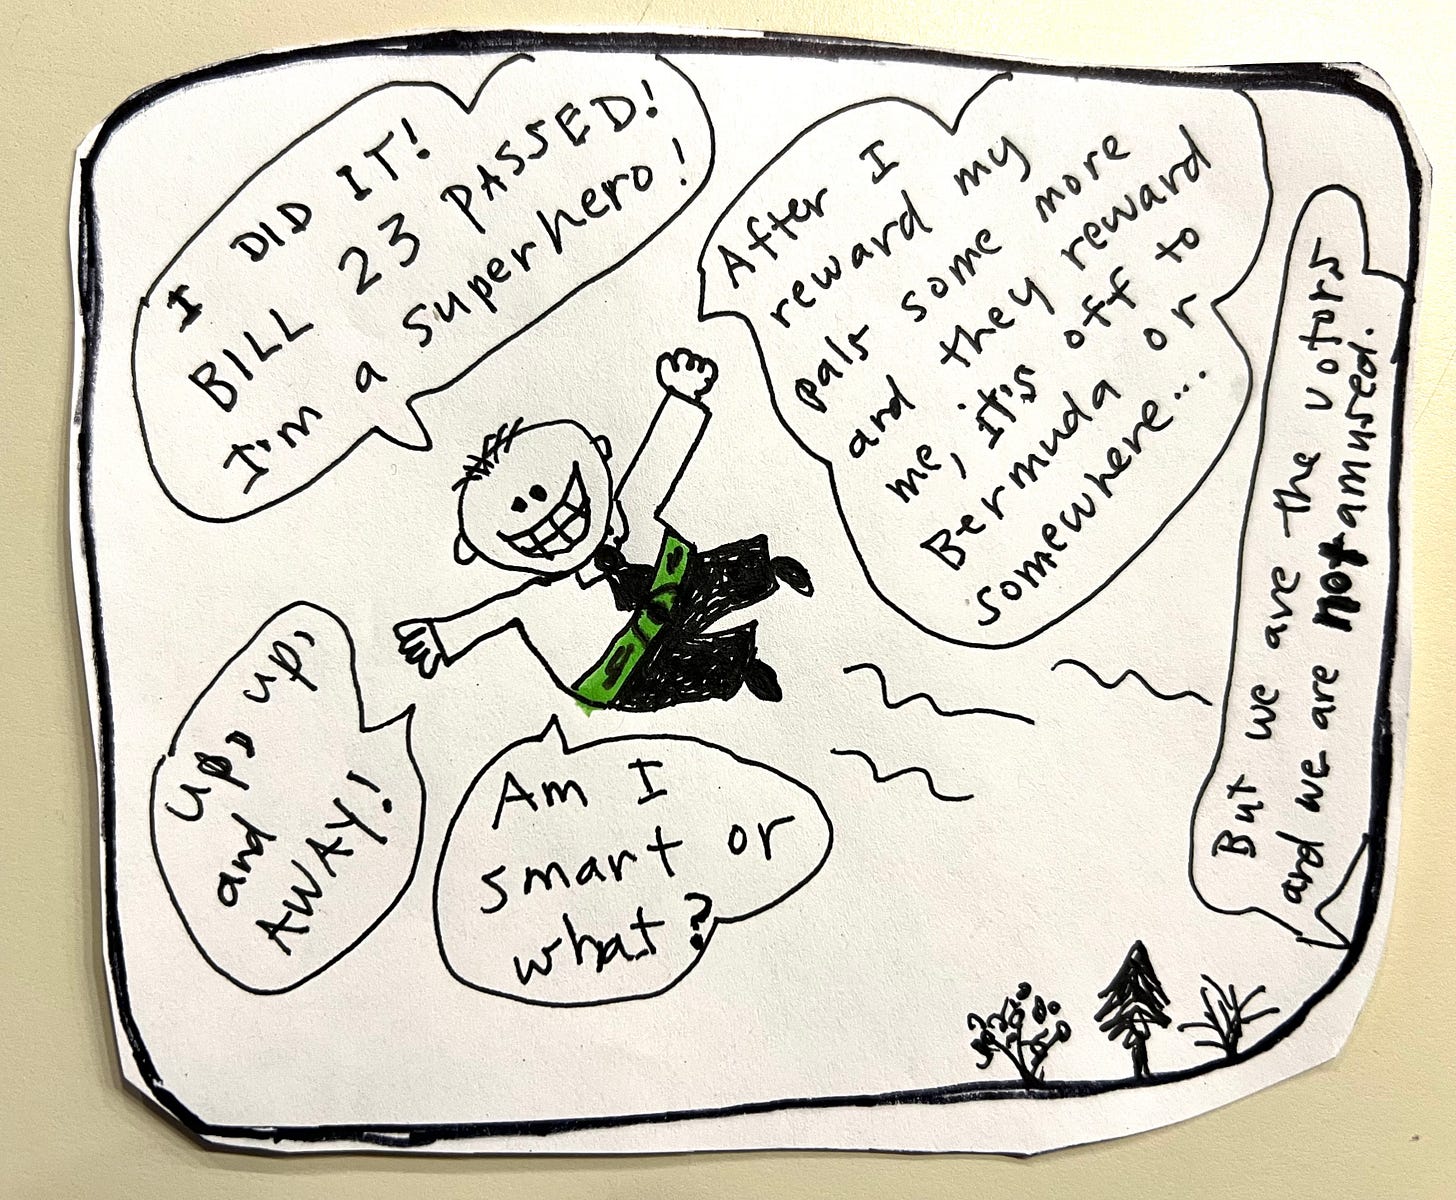 I DID IT!
BILL 23 PASSED!
I'm a superhero!
After I
reward my
pals some more
and they reward
me, it's off to
Bermuda or
somewhere...
up, up,
and
AWAY!
Am I
smart or
what?
But we are the votors
and we are not amused.